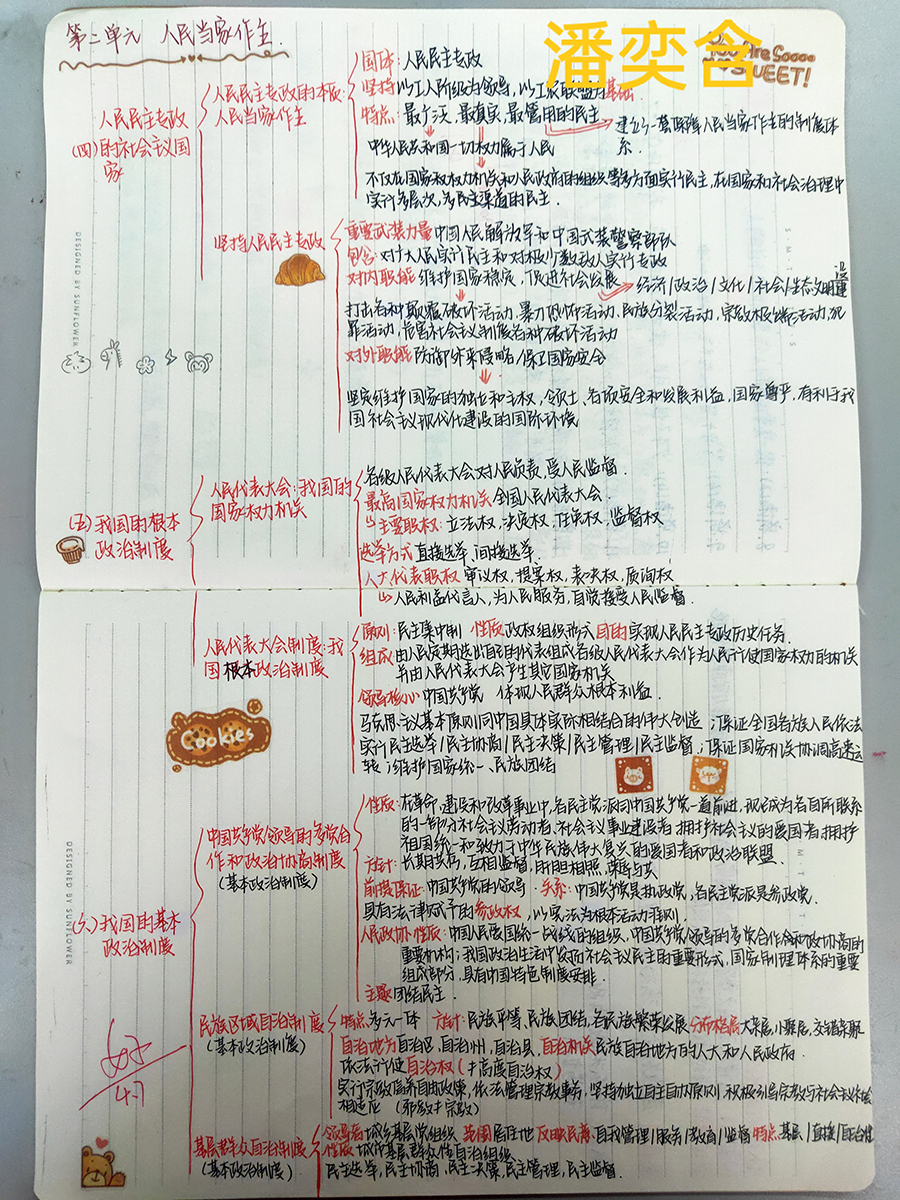 第二单元 人民当家作主.
潘奕含
You Are Soooo
SWEET!
(四)人民民主专政的社会主义国家
人民民主专政的本质:人民当家作主
国体:人民民主专政
坚持 以工人阶级为领导,以工农联盟为基础
特点:最广泛、最真实、最管用的民主
建立了一套保障人民当家作主的制度体系.
中华人民共和国一切权力属于人民
不仅在国家权力机关和人民政府的组织等多方面实行民主,在国家和社会治理中
实行多层次,多民主渠道的民主.
坚持人民民主专政
重要武装力量 中国人民解放军和中国武装警察部队
包含:对广大人民实行民主和对极少数敌人实行专政
对内职能 维护国家稳定,促进社会发展
经济/政治/文化/社会/生态文明建设
打击各种颠覆破坏活动,暴力恐怖活动,民族分裂活动,宗教极端活动,犯
罪活动,危害社会主义制度各种破坏活动
对外职能 防御外来侵略,保卫国家安全
坚定维护国家的独立和主权,领土、各项安全和发展利益,国家尊严,有利于我
国社会主义现代化建设的国际环境
DESIGNED BY SUNFLOWER
(五)我国的根本政治制度
人民代表大会:我国的国家权力机关
各级人民代表大会对人民负责,受人民监督.
最高国家权力机关 全国人民代表大会.
↳主要职权:立法权,决定权,任免权,监督权
选举方式 直接选举、间接选举.
人大代表职权 审议权,提案权,表决权,质询权
↳人民利益代言人,为人民服务,自觉接受人民监督.
人民代表大会制度:我国根本政治制度
原则:民主集中制 性质 政权组织形式 目的 实现人民民主专政历史任务.
组成 由人民定期选出自己的代表组成各级人民代表大会作为人民行使国家权力的机关
并由人民代表大会产生其它国家机关
领导核心 中国共产党 体现人民群众根本利益.
马克思主义基本原则同中国具体实际相结合的伟大创造;保证全国各族人民依法
实行民主选举/民主协商/民主决策/民主管理/民主监督;保证国家机关协调高速运
转;维护国家统一、民族团结
Cookies
(六)我国的基本政治制度
中国共产党领导的多党合作和政治协商制度
(基本政治制度)
性质:在革命,建设和改革事业中,各民主党派同中国共产党一道前进,现已成为各自所联系
的一部分社会主义劳动者,社会主义事业建设者 拥护社会主义的爱国者 拥护
祖国统一和致力于中华民族伟大复兴的爱国者和政治联盟.
方针:长期共存,互相监督,肝胆相照,荣辱与共
前提保证:中国共产党的领导.关系:中国共产党是执政党,各民主党派是参政党.
具有法律赋予的参政权,以宪法为根本活动准则.
人民政协性质:中国人民爱国统一战线的组织,中国共产党领导的多党合作和政协商的
重要机构;我国政治生活中发扬社会主义民主的重要形式,国家制理体系的重要
组成部分,具有中国特色制度安排.
主题 团结民主.
DESIGNED BY SUNFLOWER
民族区域自治制度
(基本政治制度)
特点 多元一体 方针:民族平等、民族团结,各民族繁荣发展 分布格局 大杂居,小聚居,交错杂居
自治地方 自治区,自治州,自治县,自治机关 民族自治地方的人大和人民政府.
依法行使自治权(≠高度自治权)
实行宗教信仰自由政策,依法管理宗教事务,坚持独立自主自办原则,积极引导宗教与社会主义社会
相适应 (邪教≠宗教)
4.7
基层群众自治制度
(基本政治制度)
领导者 城乡基层党组织 范围 居住地 反映民意 自我管理/服务/教育/监督 特点 基层/直接/自治性
性质 城乡基层群众性自治组织
民主选举,民主协商,民主决策,民主管理,民主监督.